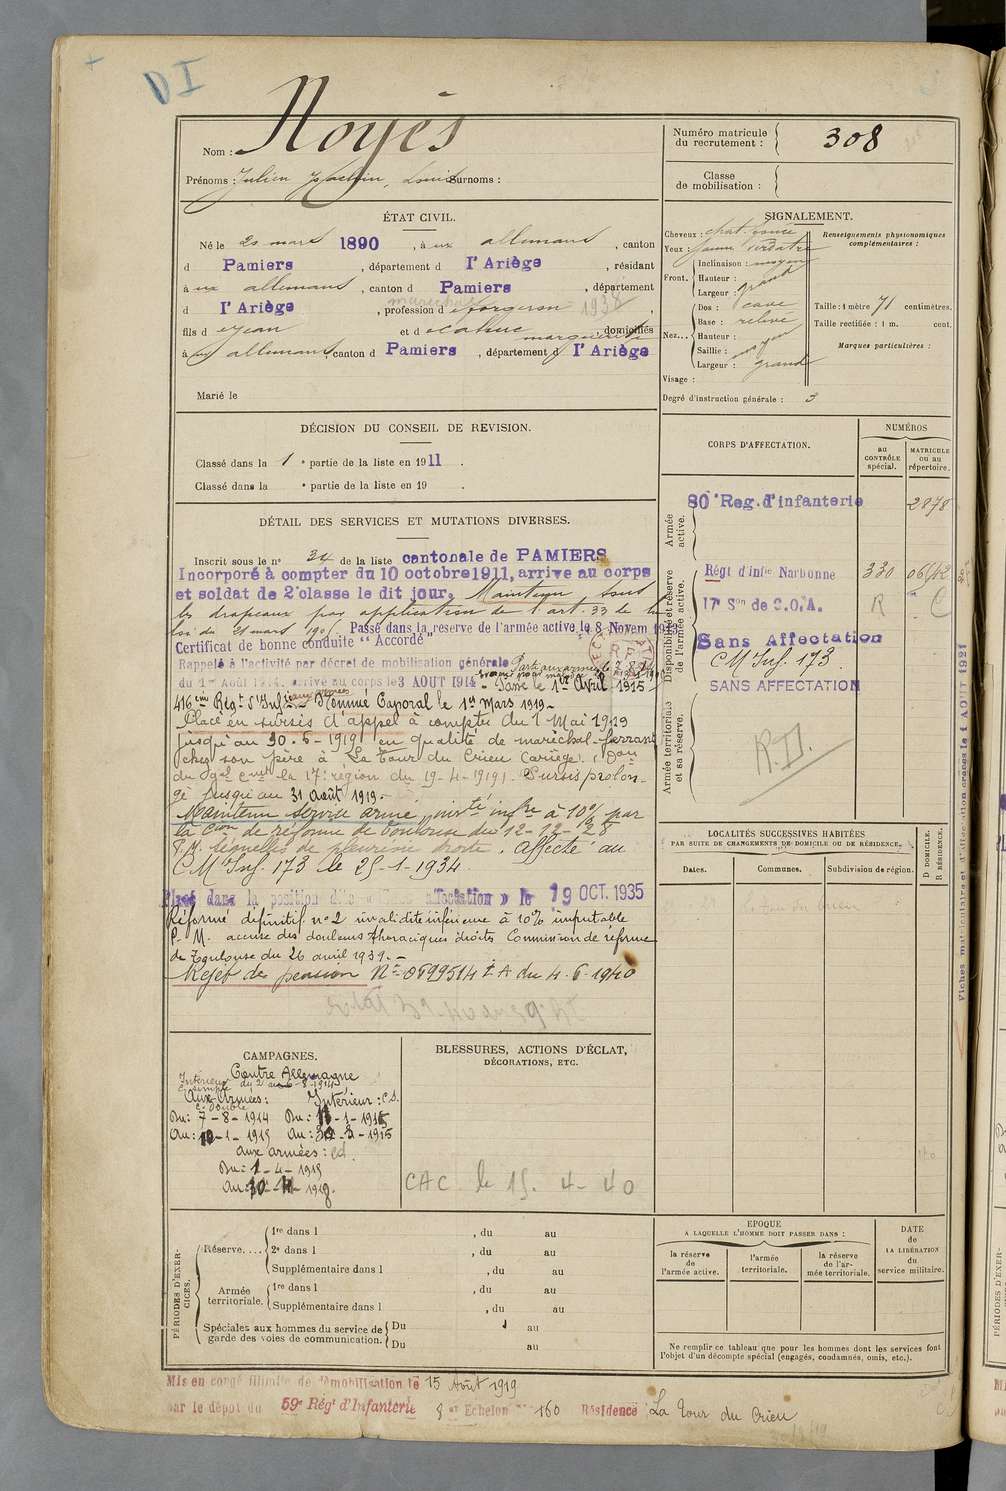 DI
Nom : Noyès
Prénoms : Julien Joachim, Louis Surnoms :
Numéro matricule du recrutement : 308
Classe de mobilisation :
ÉTAT CIVIL.
Né le 20 mars 1890, à aux allemans, canton
d Pamiers, département d l'Ariège, résidant
à aux allemans, canton d Pamiers, département
d l'Ariège, profession d maréchal forgeron 1938,
fils d Jean et d marguerite, domiciliés
à aux allemans canton d Pamiers, département d l'Ariège
Marié le
SIGNALEMENT.
Cheveux : chat. foncé
Yeux : jaune verdâtre
Renseignements physionomiques complémentaires :
Front. Inclinaison : moyen
Hauteur :
Largeur : grand
Nez... Dos : cave
Base : relevé
Hauteur :
Saillie : moyen
Largeur : grand
Visage :
Taille : 1 mètre 71 centimètres.
Taille rectifiée : 1 m. cent.
Marques particulières :
Degré d'instruction générale : 3
DÉCISION DU CONSEIL DE REVISION.
Classé dans la 1 e partie de la liste en 1911.
Classé dans la e partie de la liste en 19 .
DÉTAIL DES SERVICES ET MUTATIONS DIVERSES.
Inscrit sous le n° 34 de la liste cantonale de PAMIERS
Incorporé à compter du 10 octobre 1911, arrivé au corps
et soldat de 2e classe le dit jour. Maintenu sous
les drapeaux par application de l'art. 33 de la
loi du 21 mars 1905 Passé dans la réserve de l'armée active le 8 Novem 1913
Certificat de bonne conduite "Accordé"
Rappelé à l'activité par décret de mobilisation générale
du 1er Août 1914. arrivé au corps le 3 AOUT 1914 - Passé le 1er Avril 1915
416ème Régt d'Inf.ie aux armées Nommé Caporal le 1er Mars 1919 -
Placé en sursis d'appel à compter du 1 Mai 1919
jusqu'au 30-6-1919 en qualité de maréchal-ferrant
chez son père à La Tour du Crieu (Ariège). (Don
du Gal Cmdt la 17e région du 19-4-1919). Sursis prolon-
gé jusqu'au 31 Août 1919 -
Maintenu service armé, invté infre à 10% par
la Cion de réforme de Toulouse du 12-12-28
P.M. séquelles de pleurésie droite. Affecté au
CM Inf. 173 le 25-1-1934
Placé dans la position dite « Sans affectation » le 19 OCT. 1935
Réformé définitif n°2 invalidité inférieure à 10% imputable
P.M. accuse des douleurs thoraciques droites Commission de réforme
de Toulouse du 26 avril 1939. -
Rejet de pension N° 0599514 Z.A du 4-6-1940
CORPS D'AFFECTATION.
NUMÉROS
au CONTRÔLE spécial.
MATRICULE ou au répertoire.
Armée active.
80e Reg. d'infanterie 2878
Disponibilité et réserve de l'armée active.
Régt d'infie Narbonne 330
17e Son de C.O.A. R C
Sans Affectation
CM Inf. 173
SANS AFFECTATION
Armée territoriale et sa réserve.
R.D.
LOCALITÉS SUCCESSIVES HABITÉES
PAR SUITE DE CHANGEMENTS DE DOMICILE OU DE RÉSIDENCE.
Dates. Communes. Subdivision de région.
D DOMICILE. R RÉSIDENCE.
CAMPAGNES.
Contre Allemagne
Intérieur
Aux Armées : Intérieur : c.s.
Du : 7-8-1914 Du : 11-1-1915
Au : 10-1-1915 Au : 31-3-1915
aux armées :
Du : 1-4-1915
BLESSURES, ACTIONS D'ÉCLAT,
DÉCORATIONS, ETC.
CAC le 15. 4-40
PÉRIODES D'EXERCICES.
Réserve.... 1re dans l , du au
2e dans l , du au
Supplémentaire dans l , du au
Armée territoriale. 1re dans l , du au
Supplémentaire dans l , du au
Spéciales aux hommes du service de garde des voies de communication. Du au
Du au
EPOQUE
A LAQUELLE L'HOMME DOIT PASSER DANS :
la réserve de l'armée active.
l'armée territoriale.
la réserve de l'armée territoriale.
DATE de LA LIBÉRATION du service militaire.
Ne remplir ce tableau que pour les hommes dont les services font
l'objet d'un décompte spécial (engagés, condamnés, omis, etc.).
Mis en congé illimité de démobilisation le 15 Août 1919
par le dépôt du 59e Régt d'Infanterie 8 e Echelon 160 Résidence La Tour du Crieu